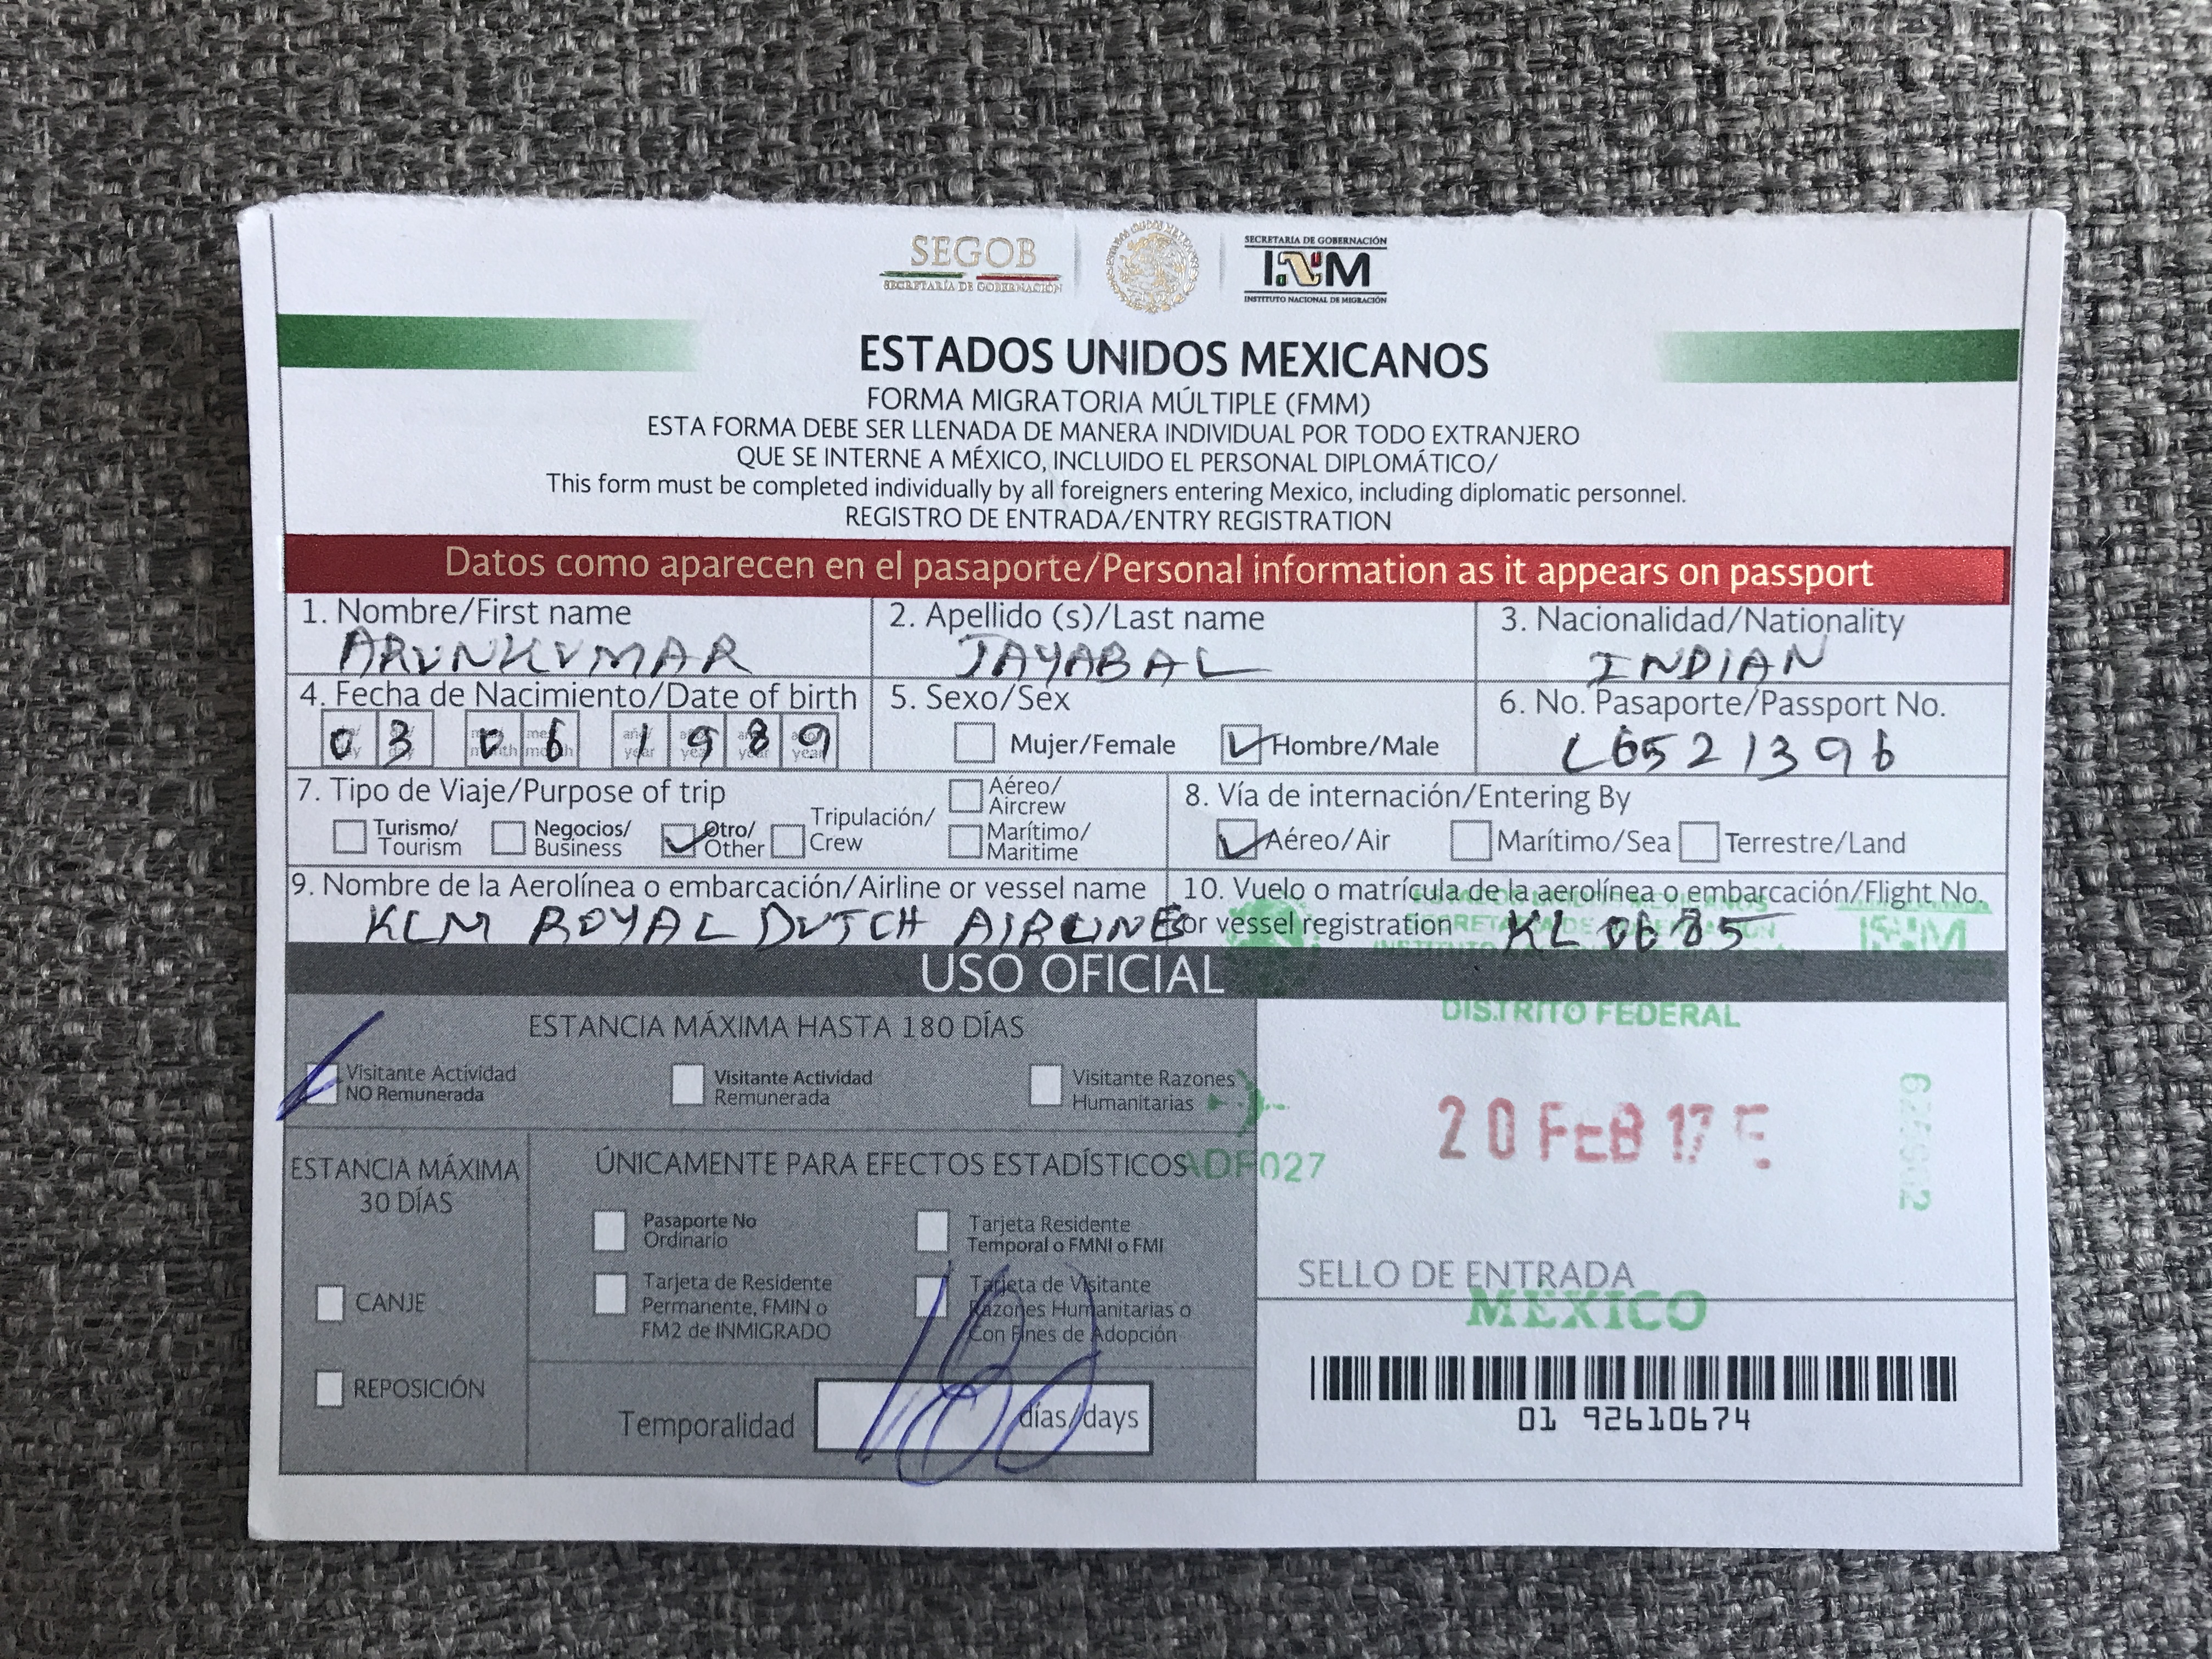 SEGOB
SECRETARÍA DE GOBERNACIÓN
SECRETARÍA DE GOBERNACIÓN
INM
INSTITUTO NACIONAL DE MIGRACIÓN
ESTADOS UNIDOS MEXICANOS
FORMA MIGRATORIA MÚLTIPLE (FMM)
ESTA FORMA DEBE SER LLENADA DE MANERA INDIVIDUAL POR TODO EXTRANJERO
QUE SE INTERNE A MÉXICO, INCLUIDO EL PERSONAL DIPLOMÁTICO/
This form must be completed individually by all foreigners entering Mexico, including diplomatic personnel.
REGISTRO DE ENTRADA/ENTRY REGISTRATION
Datos como aparecen en el pasaporte/Personal information as it appears on passport
1. Nombre/First name
ARVINKUMAR
2. Apellido (s)/Last name
JAYABAL
3. Nacionalidad/Nationality
INDIAN
4. Fecha de Nacimiento/Date of birth
03 06 1989
5. Sexo/Sex
Mujer/Female
Hombre/Male
6. No. Pasaporte/Passport No.
L6521396
7. Tipo de Viaje/Purpose of trip
Turismo/
Tourism
Negocios/
Business
Otro/
Other
Tripulación/
Crew
Aéreo/
Aircrew
Marítimo/
Maritime
8. Vía de internación/Entering By
Aéreo/Air
Marítimo/Sea
Terrestre/Land
9. Nombre de la Aerolínea o embarcación/Airline or vessel name
KLM ROYAL DUTCH AIRLINES
10. Vuelo o matrícula de la aerolínea o embarcación/Flight No.
or vessel registration
KL0685
USO OFICIAL
ESTANCIA MÁXIMA HASTA 180 DÍAS
Visitante Actividad
NO Remunerada
Visitante Actividad
Remunerada
Visitante Razones
Humanitarias
ESTANCIA MÁXIMA
30 DÍAS
CANJE
REPOSICIÓN
ÚNICAMENTE PARA EFECTOS ESTADÍSTICOS
Pasaporte No
Ordinario
Tarjeta Residente
Temporal o FMNI o FMI
Tarjeta de Residente
Permanente, FMIN o
FM2 de INMIGRADO
Tarjeta de Visitante
Razones Humanitarias o
Con Fines de Adopción
Temporalidad
días/days
ADF027
DISTRITO FEDERAL
20 FEB 17
SELLO DE ENTRADA
MEXICO
01 92610674